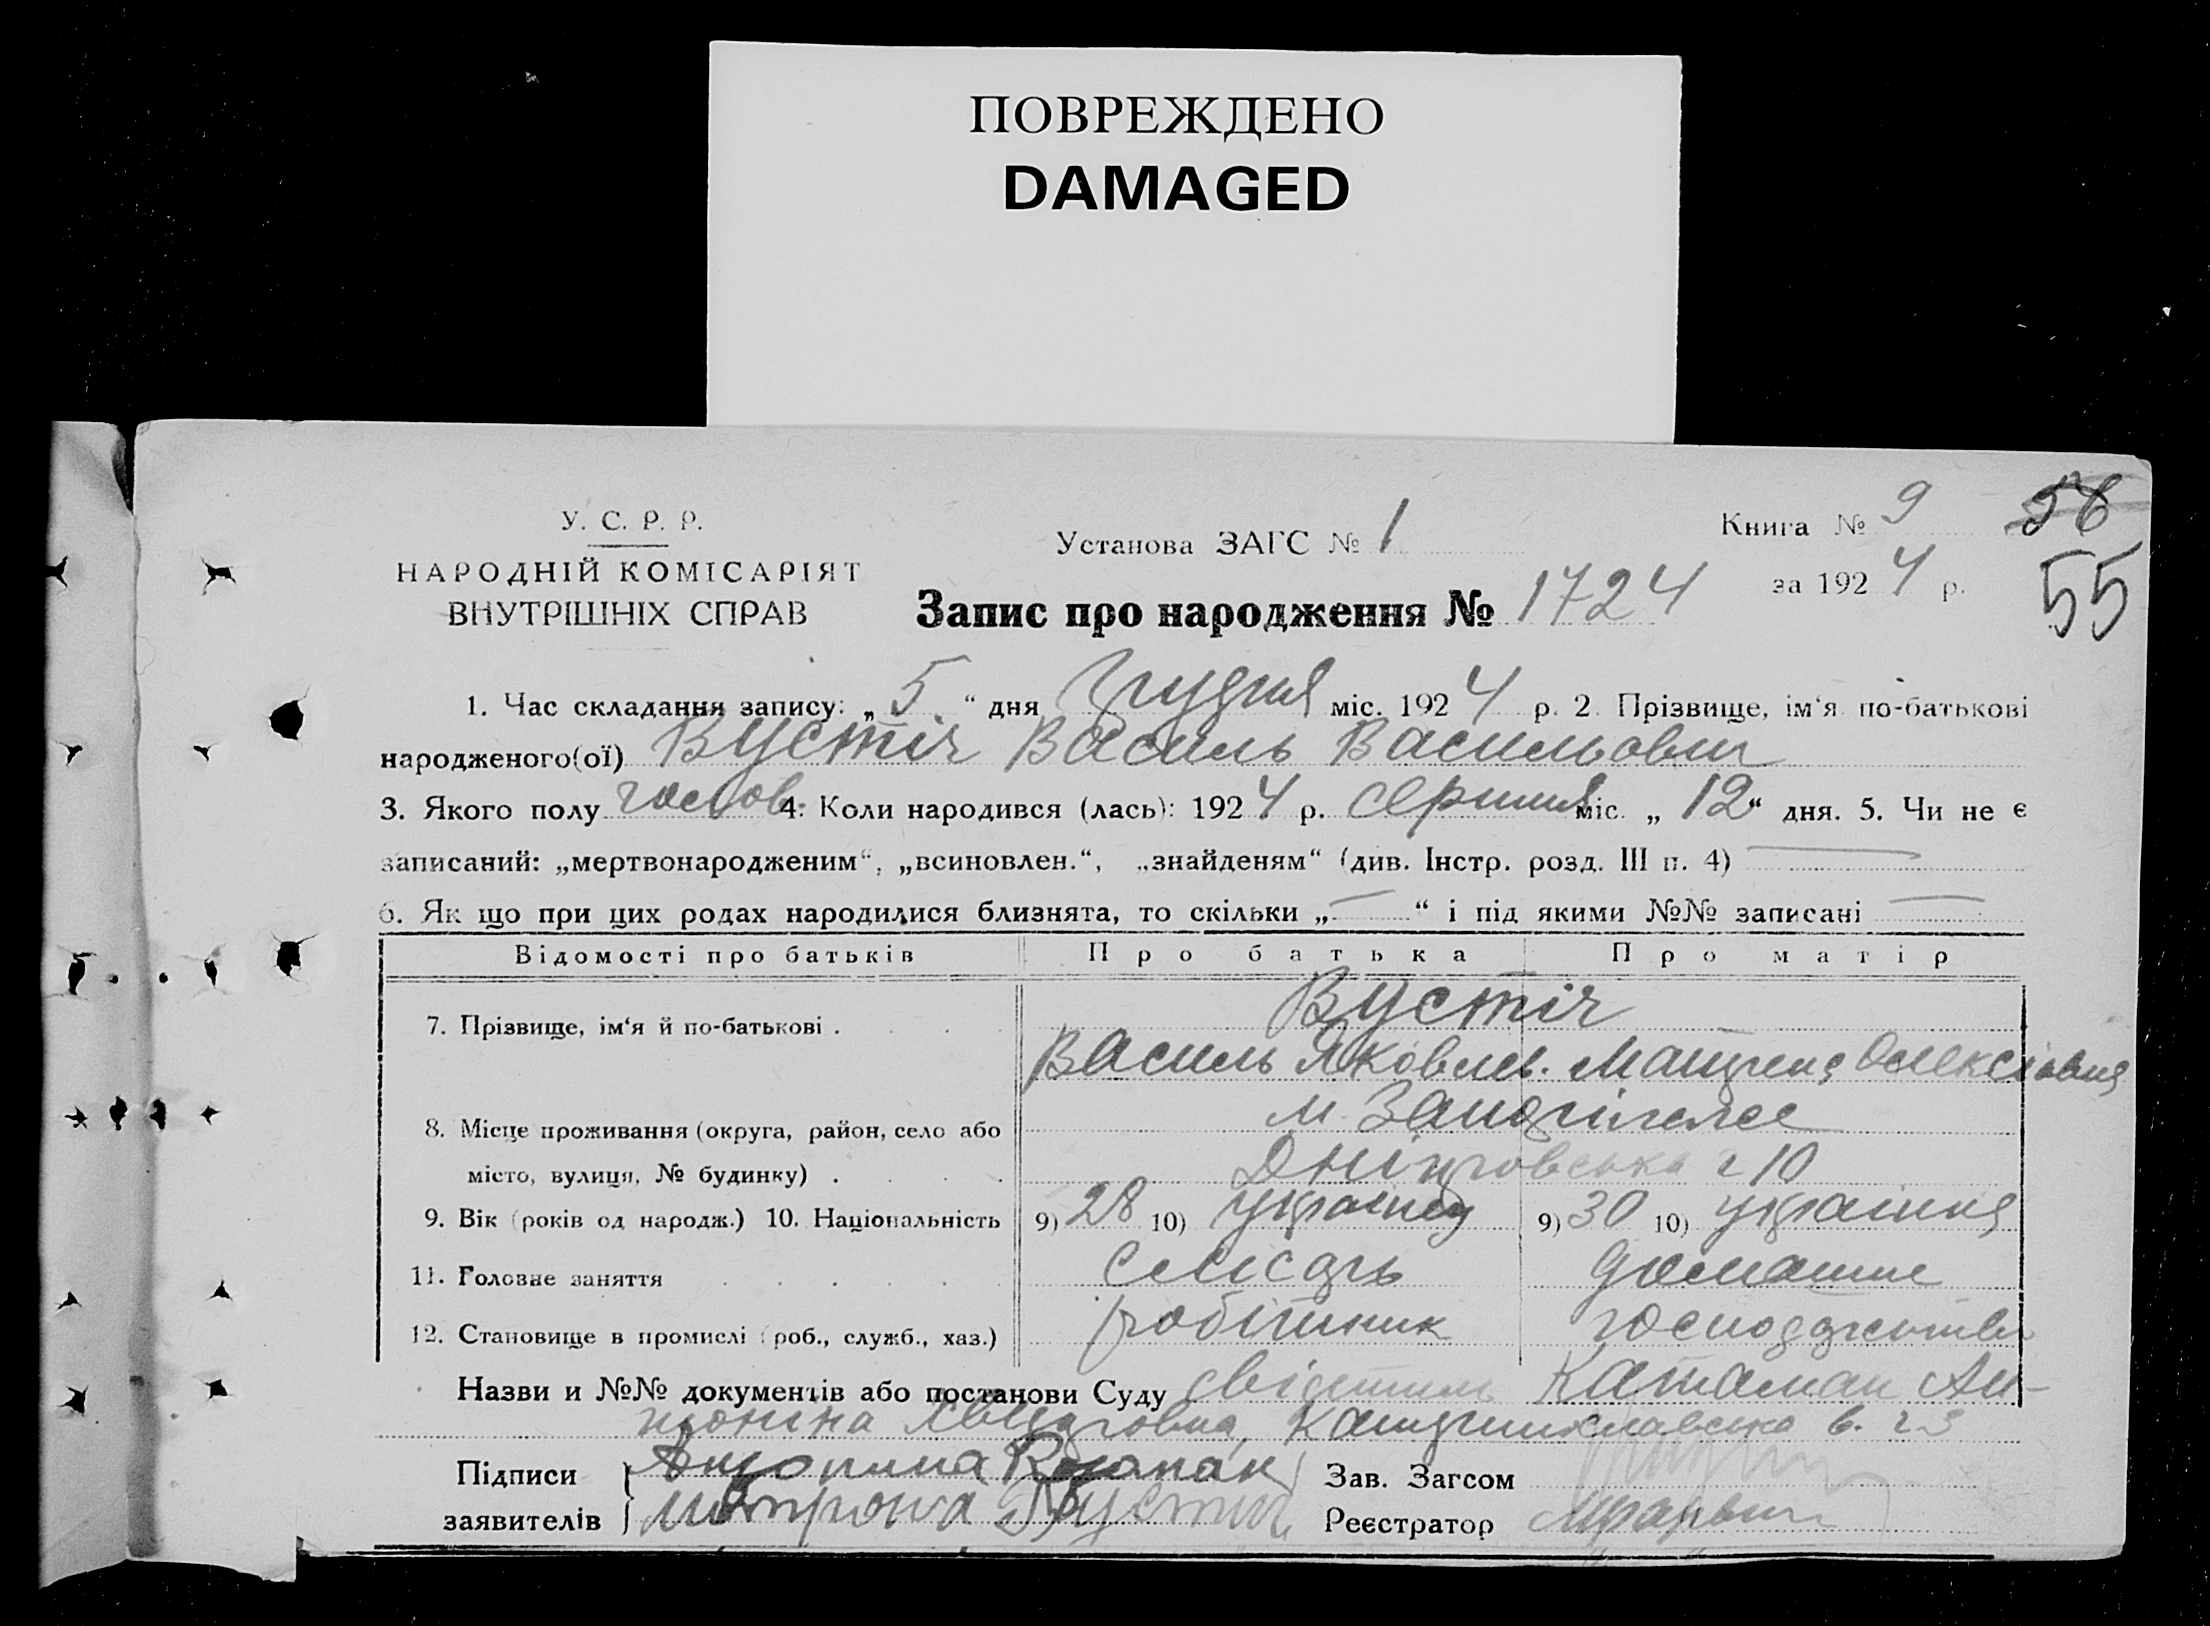 ПОВРЕЖДЕНО
DAMAGED
У. С. Р. Р.
НАРОДНІЙ КОМІСАРІЯТ
ВНУТРІШНІХ СПРАВ
Установа ЗАГС № 1
Книга № 9
56
за 1924 р.
55
Запис про народження № 1724
1. Час складання запису: „5“ дня Грудня міс. 1924 р. 2. Прізвище, ім‘я по-батькові
народженого(ої) Вустіч Василь Васильович
3. Якого полу чолов. 4. Коли народився (лась): 1924 р. Серпня міс. „12“ дня. 5. Чи не є
записаний: „мертвонародженим“, „всиновлен.“, „знайденям“ (див. Інстр. розд. III п. 4) —
6. Як що при цих родах народилися близнята, то скільки „—“ і під якими №№ записані —
Відомості про батьків Про батька Про матір
7. Прізвище, ім‘я й по-батькові . Вустіч
Василь Яковлев. Мотрона Олексіовна
8. Місце проживання (округа, район, село або м. Запоріжжє
місто, вулиця, № будинку) . Дніпровська 10
9. Вік (років од народж.) 10. Національність 9) 28 10) українец 9) 30 10) українка
11. Головне заняття слюсарь домашнє
12. Становище в промислі (роб., служб., хаз.) робітник господарство
Назви и №№ документів або постанови Суду Катаман Ан-
в. 23
Підписи
заявителів
Зав. Загсом
Реєстратор